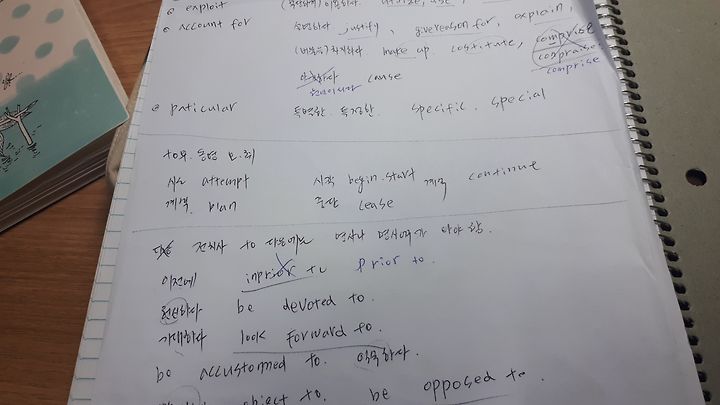 exploit (
account for 설명하다, justify, give reason for, explain,
(비율을) 차지하다 make up costitute, comprise
compraise
cause comprise
원인이다
paticular 특별한. 특정한. specific. special
to부. 동명 모.두
시도 attempt 시작 begin. start 계속 continue
계획. plan 중단 cease
전치사 to 다음에는 명사나 명사여가 와야 함.
이전에 inprior to prior to.
헌신하다 be devoted to.
기대하다 look forward to.
be accustomed to. 익숙하다.
object to. be opposed to.